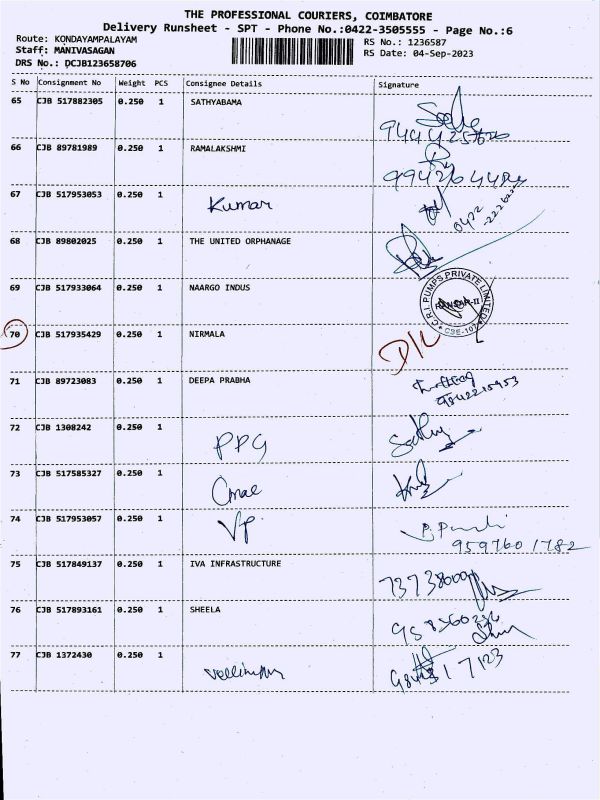 THE PROFESSIONAL COURIERS, COIMBATORE
Delivery Runsheet - SPT - Phone No.:0422-3505555 - Page No.:6
Route: KONDAYAMPALAYAM
RS No.: 1236587
Staff: MANIVASAGAN
RS Date: 04-Sep-2023
DRS No.: DCJB123658706
S No Consignment No Weight PCS Consignee Details Signature
65 CJB 517882305 0.250 1 SATHYABAMA
66 CJB 89781989 0.250 1 RAMALAKSHMI
67 CJB 517953053 0.250 1 Kumar
68 CJB 89802025 0.250 1 THE UNITED ORPHANAGE
69 CJB 517933064 0.250 1 NAARGO INDUS
C.R.I. PUMPS PRIVATE LIMITED
70 CJB 517935429 0.250 1 NIRMALA D/L
71 CJB 89723083 0.250 1 DEEPA PRABHA
9842215953
72 CJB 1308242 0.250 1 PPG
73 CJB 517585327 0.250 1
74 CJB 517953057 0.250 1 VP.
9597601782
75 CJB 517849137 0.250 1 IVA INFRASTRUCTURE
76 CJB 517893161 0.250 1 SHEELA
77 CJB 1372430 0.250 1